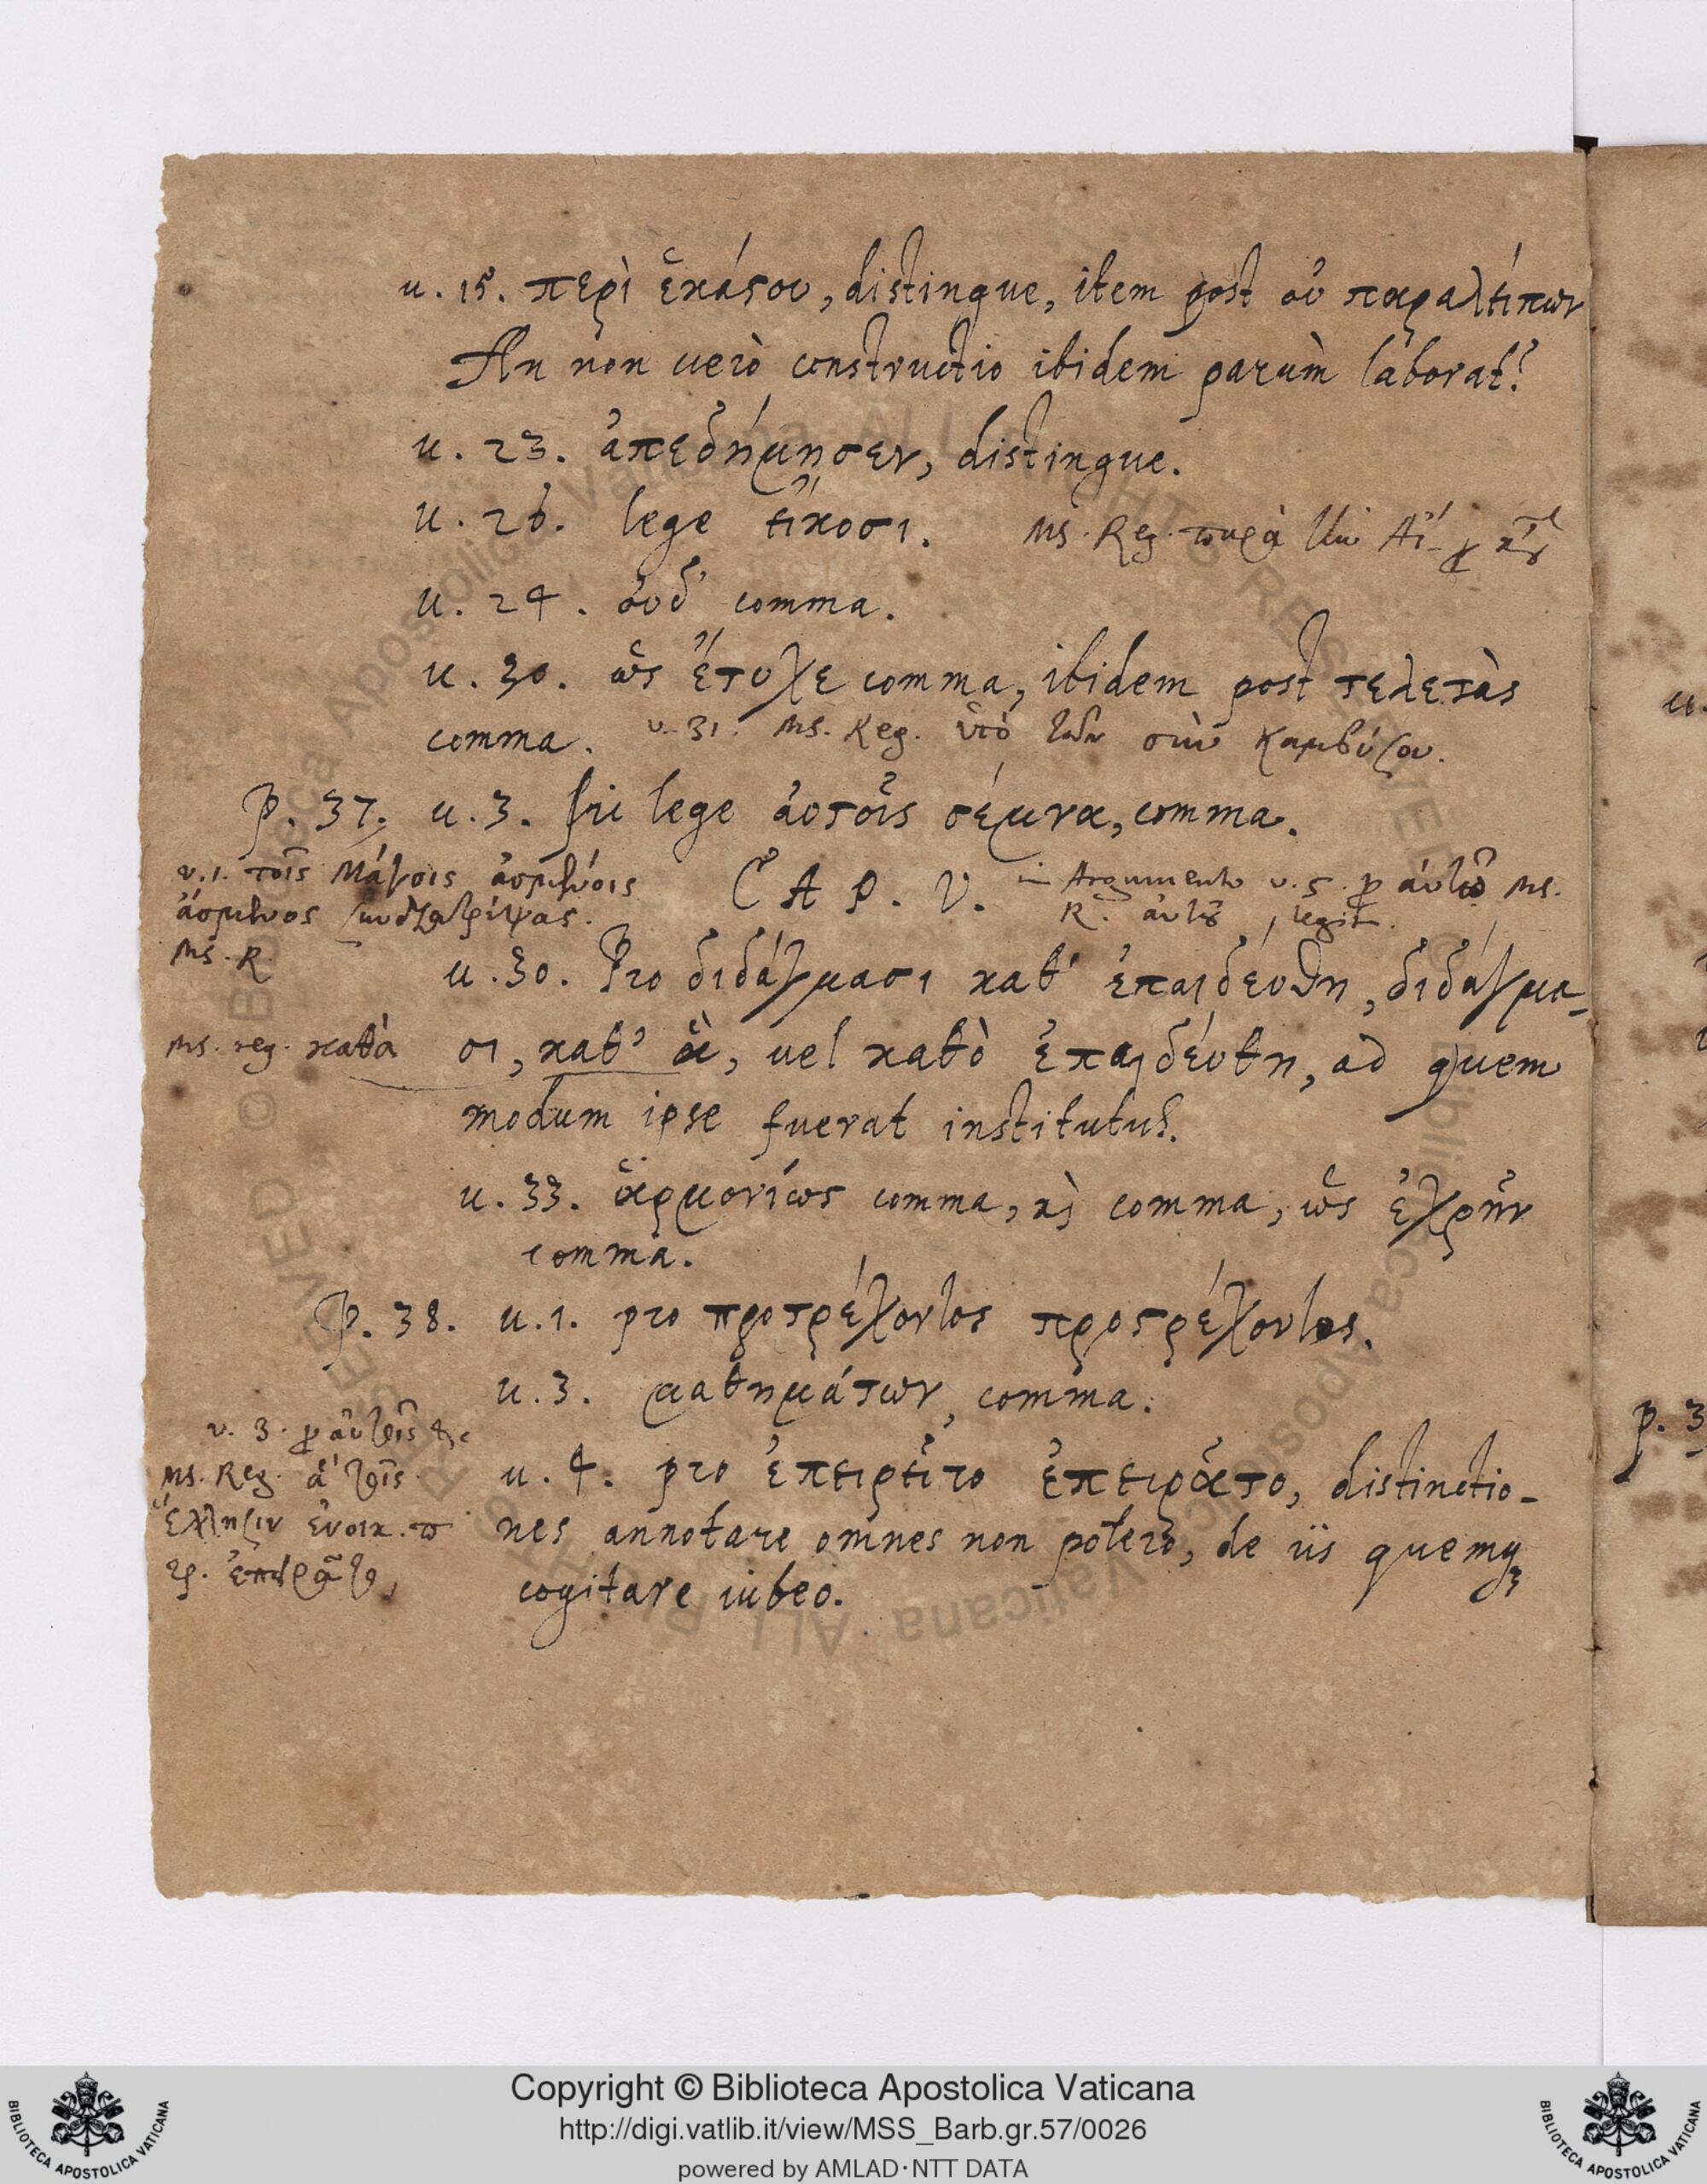 u. 15. περὶ ἑκάστου, distingue, item post οὐ παραλείπων
An non uerò constructio ibidem parùm laborat?
u. 23. ἀπεδήμησεν, distingue.
u. 26. lege εἴκοσι. Ms. Reg. παρὰ
u. 24. οὐδ' comma.
u. 30. ὡς ἔτυχε comma, ibidem post τελετὰς
comma. v. 31. Ms. Reg. ὑπὸ τῶν σὺν Καμβύσου.
P. 37. u. 3. sic lege αὐτοῖς σέμνα, comma.
v. 1. τοῖς Μάγοις ἀσμένοις
ἄσμενος συνδιατρίψας.
Ms. R.
CAP. V.
in Argumento v. 5. p αὐτῷ Ms.
R. αὐτοῦ, legit.
u. 30. Pro διδάγμασι κατ' ἐπαιδεύθη, διδάγμα-
Ms. reg. κατὰ
σι, καθ' ἃ, uel καθὸ ἐπαιδεύθη, ad quem
modum ipse fuerat institutus.
u. 33. ἁρμονίως comma, κὶ comma, ὡς ἐχρῆν
comma.
P. 38. u. 1. pro προτρέχοντος προστρέχοντος.
u. 3. μαθημάτων, comma.
v. 3. p αὐτοῖς &c
Ms. Reg. τοῖς
Ἕλλησιν ἐνοικ.
u. 4. pro ἐπειρεῖτο ἐπειρᾶτο, distinctio-
nes annotare omnes non potero, de iis quemq
cogitare iubeo.
Copyright © Biblioteca Apostolica Vaticana
http://digi.vatlib.it/view/MSS_Barb.gr.57/0026
powered by AMLAD·NTT DATA
BIBLIOTECA APOSTOLICA VATICANA
BIBLIOTECA APOSTOLICA VATICANA